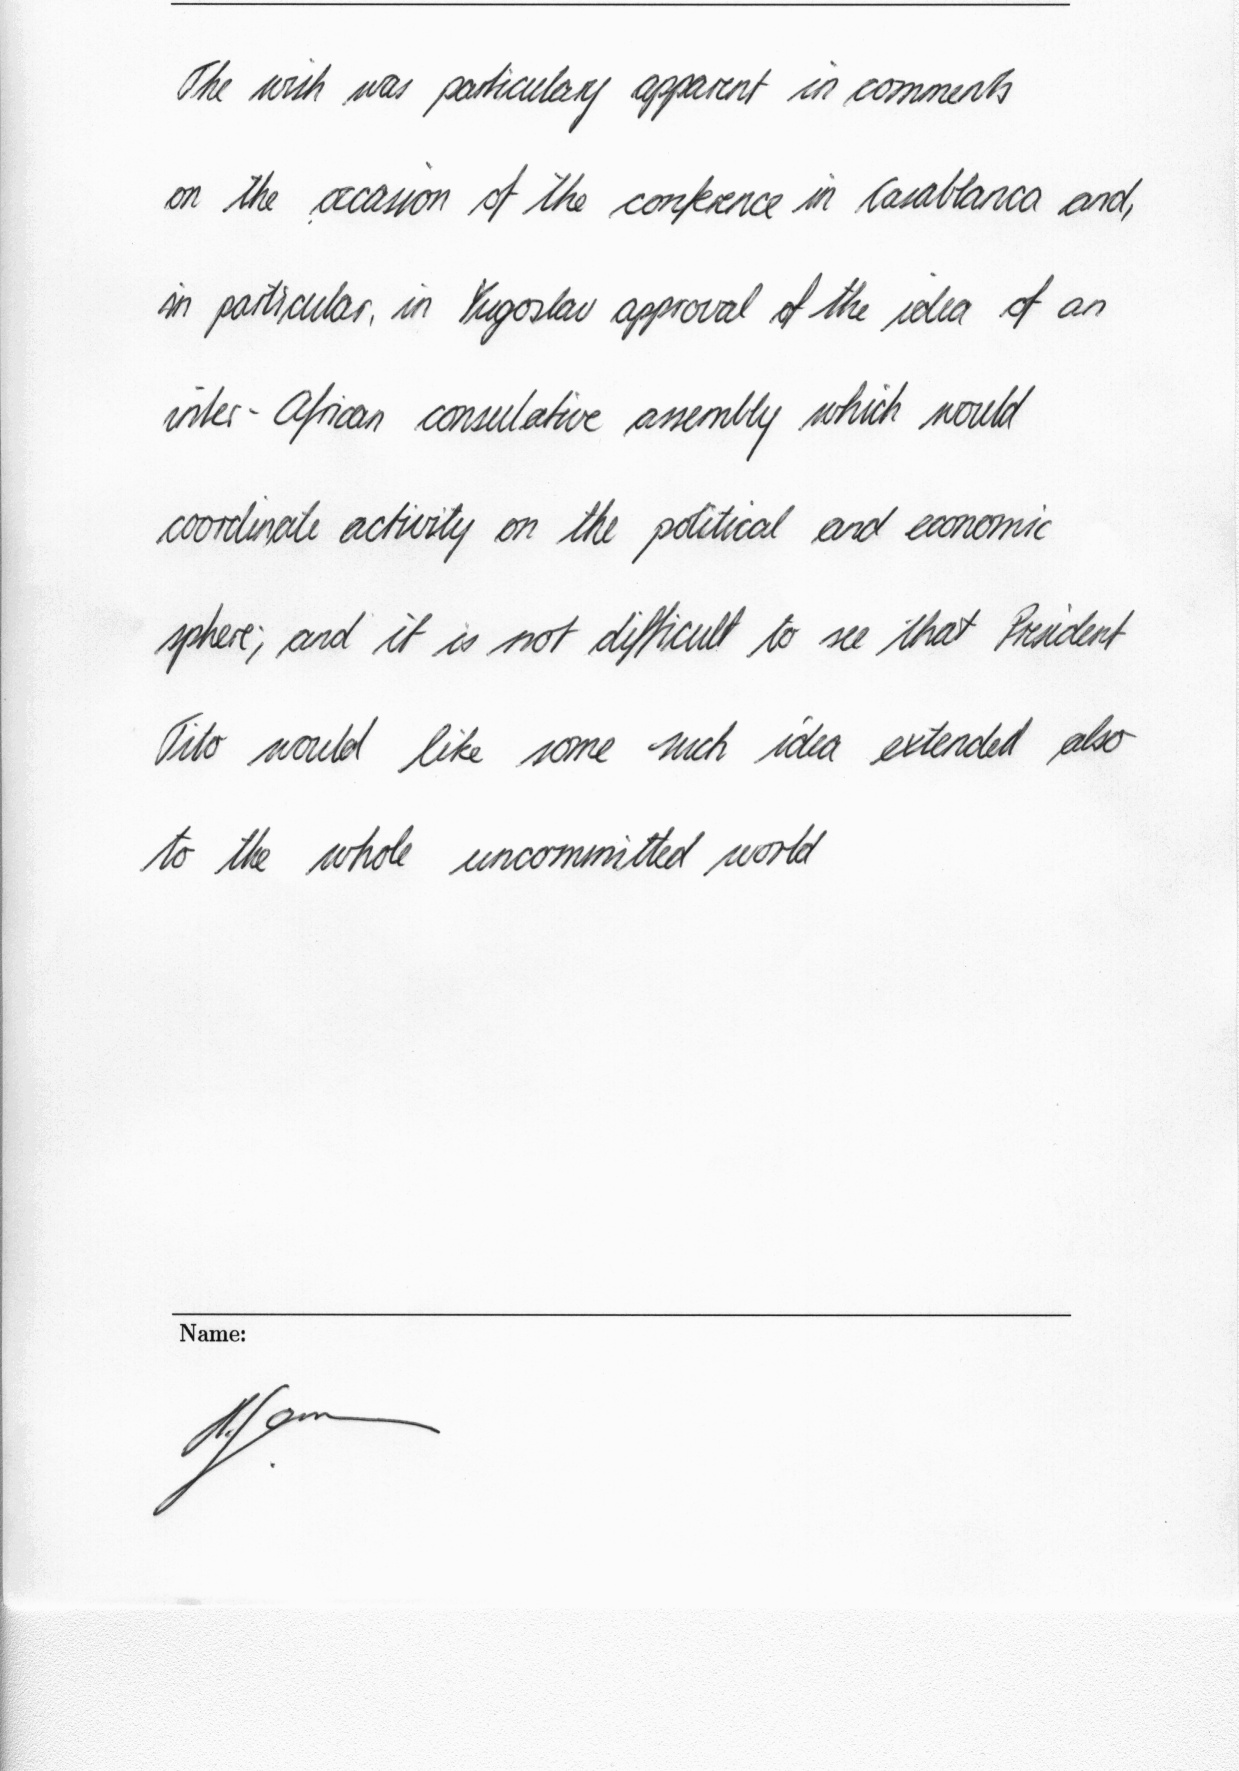 The wish was particulary apparent in comments
on the occasion of the conference in Casablanca and,
in particular, in Yugoslav approval of the idea of an
inter-African consulative assembly which would
coordinate activity on the political and economic
sphere; and it is not difficult to see that President
Tito would like some such idea extended also
to the whole uncommitted world
Name: